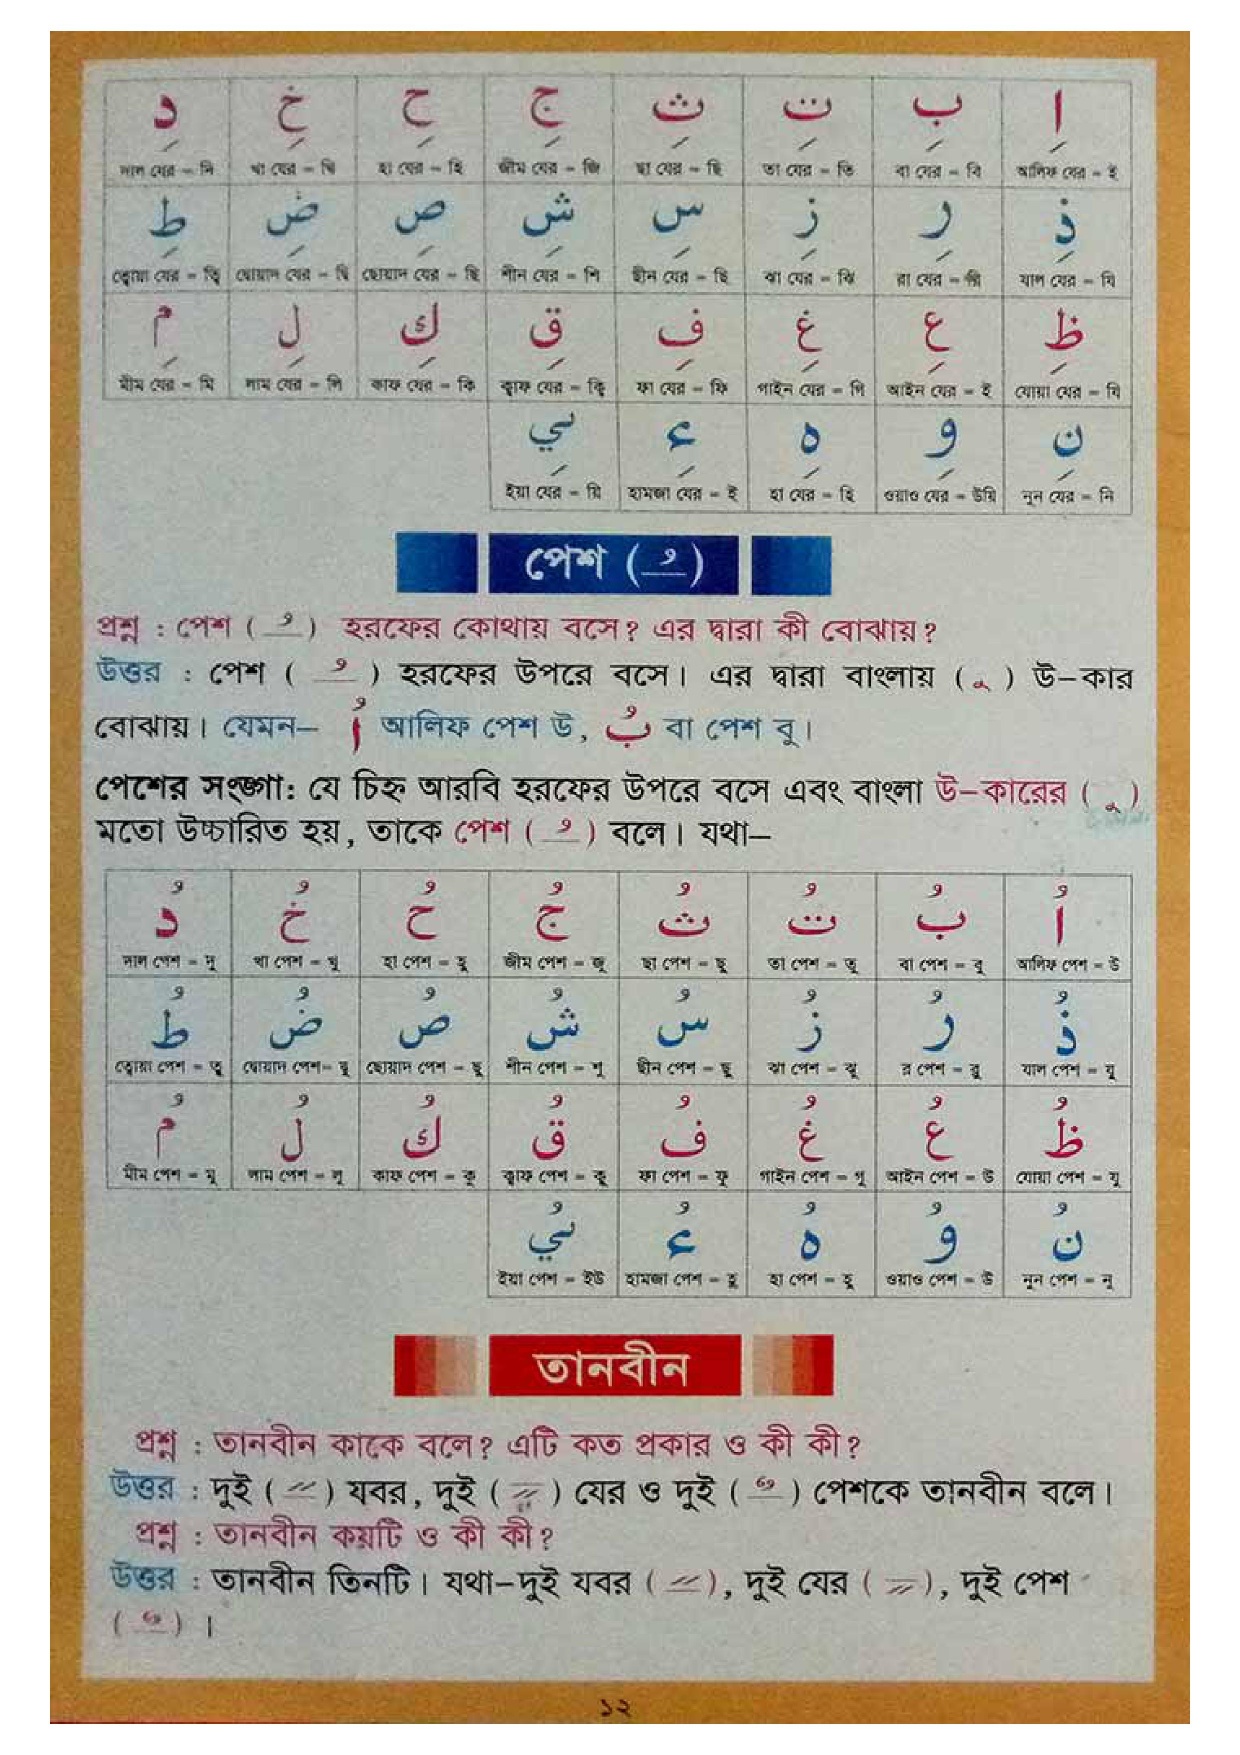 د خ ح ج ث ت ب ا
দাল যের = দি খা যের = খি হা যের = হি জীম যের = জি ছা যের = ছি তা যের = তি বা যের = বি আলিফ যের = ই
ط ض ص ش س ز ر ذ
ত্বোয়া যের = ত্বি দ্বোয়াদ যের = দ্বি ছোয়াদ যের = ছি শীন যের = শি ছীন যের = ছি ঝা যের = ঝি রা যের = রি যাল যের = যি
م ل ك ق ف غ ع ظ
মীম যের = মি লাম যের = লি কাফ যের = কি ক্বাফ যের = ক্বি ফা যের = ফি গাইন যের = গি আইন যের = ই যোয়া যের = যি
ي ء ه و ن
ইয়া যের = য়ি হামজা যের = ই হা যের = হি ওয়াও যের = উয়ি নূন যের = নি
পেশ ( ُ )
প্রশ্ন : পেশ ( ُ ) হরফের কোথায় বসে? এর দ্বারা কী বোঝায়?
উত্তর : পেশ ( ُ ) হরফের উপরে বসে। এর দ্বারা বাংলায় ( ু ) উ-কার
বোঝায়। যেমন– اُ আলিফ পেশ উ, بُ বা পেশ বু।
পেশের সংজ্ঞা: যে চিহ্ন আরবি হরফের উপরে বসে এবং বাংলা উ-কারের ( ু )
মতো উচ্চারিত হয়, তাকে পেশ ( ُ ) বলে। যথা–
دُ خُ حُ جُ ثُ تُ بُ اُ
দাল পেশ = দু খা পেশ = খু হা পেশ = হু জীম পেশ = জু ছা পেশ = ছু তা পেশ = তু বা পেশ = বু আলিফ পেশ = উ
طُ ضُ صُ شُ سُ زُ رُ ذُ
ত্বোয়া পেশ = তু দ্বোয়াদ পেশ= দ্বু ছোয়াদ পেশ = ছু শীন পেশ = শু ছীন পেশ = ছু ঝা পেশ = ঝু র পেশ = রু যাল পেশ = যু
مُ لُ كُ قُ فُ غُ عُ ظُ
মীম পেশ = মু লাম পেশ = লু কাফ পেশ = কু ক্বাফ পেশ = কু ফা পেশ = ফু গাইন পেশ = গু আইন পেশ = উ যোয়া পেশ = যু
يُ ءُ هُ وُ نُ
ইয়া পেশ = ইউ হামজা পেশ = হু হা পেশ = হু ওয়াও পেশ = উ নূন পেশ = নু
তানবীন
প্রশ্ন : তানবীন কাকে বলে? এটি কত প্রকার ও কী কী?
উত্তর : দুই ( ً ) যবর, দুই ( ٍ ) যের ও দুই ( ٌ ) পেশকে তানবীন বলে।
প্রশ্ন : তানবীন কয়টি ও কী কী?
উত্তর : তানবীন তিনটি। যথা–দুই যবর ( ً ), দুই যের ( ٍ ), দুই পেশ
( ٌ ) ।
১২